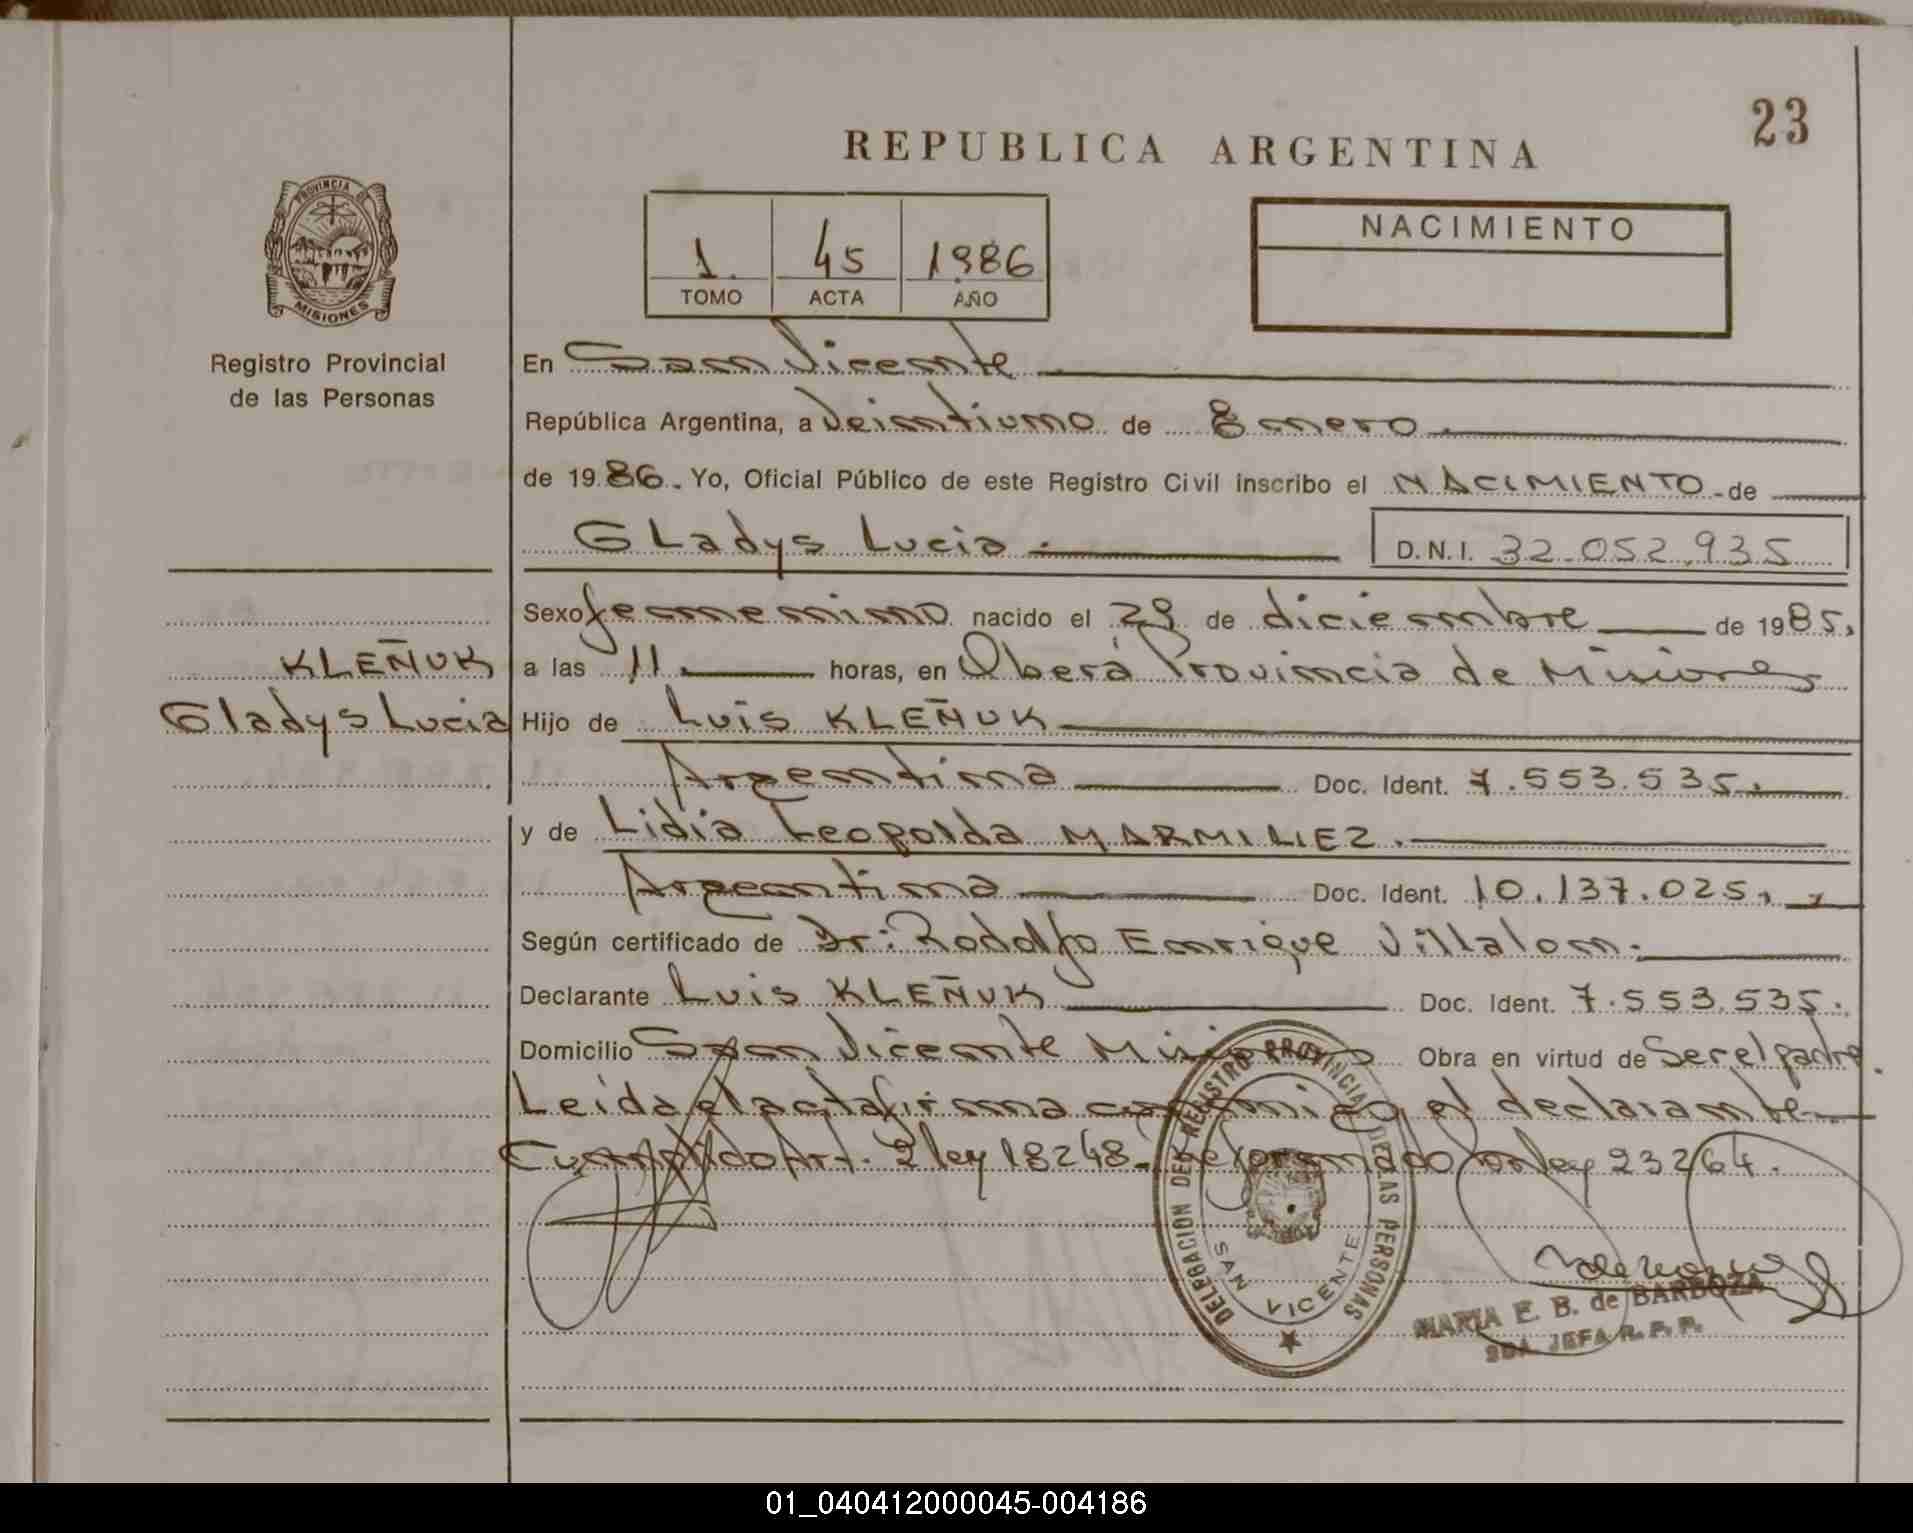 23
REPUBLICA ARGENTINA
PROVINCIA DE
MISIONES
Registro Provincial
de las Personas
1. 45 1986
TOMO ACTA AÑO
NACIMIENTO
En San Vicente
República Argentina, a Veintiuno de Enero.
de 1986. Yo, Oficial Público de este Registro Civil inscribo el NACIMIENTO - de
Gladys Lucia. D.N.I. 32.052.935
Sexo femenino nacido el 29 de diciembre de 1985.
KLEÑUK
Gladys Lucia
a las 11. horas, en Oberá Provincia de Misiones
Hijo de Luis KLEÑUK
Argentina Doc. Ident. 7.553.535.
y de Lidia Leopolda MARMILIEZ.
Argentina Doc. Ident. 10.137.025.
Según certificado de Dr: Rodolfo Enrique Villalon.
Declarante Luis KLEÑUK Doc. Ident. 7.553.535.
Domicilio San Vicente Misiones Obra en virtud de Ser el padre.
Leida el acta firma conmigo el declarante
Cumplido Art. 2 ley 18248. reformado por ley 23264.
DELEGACION DEL REGISTRO PROVINCIAL DE LAS PERSONAS
SAN VICENTE
MARIA E. B. de BARBOZA
2DA JEFA R. P. P.
01_040412000045-004186